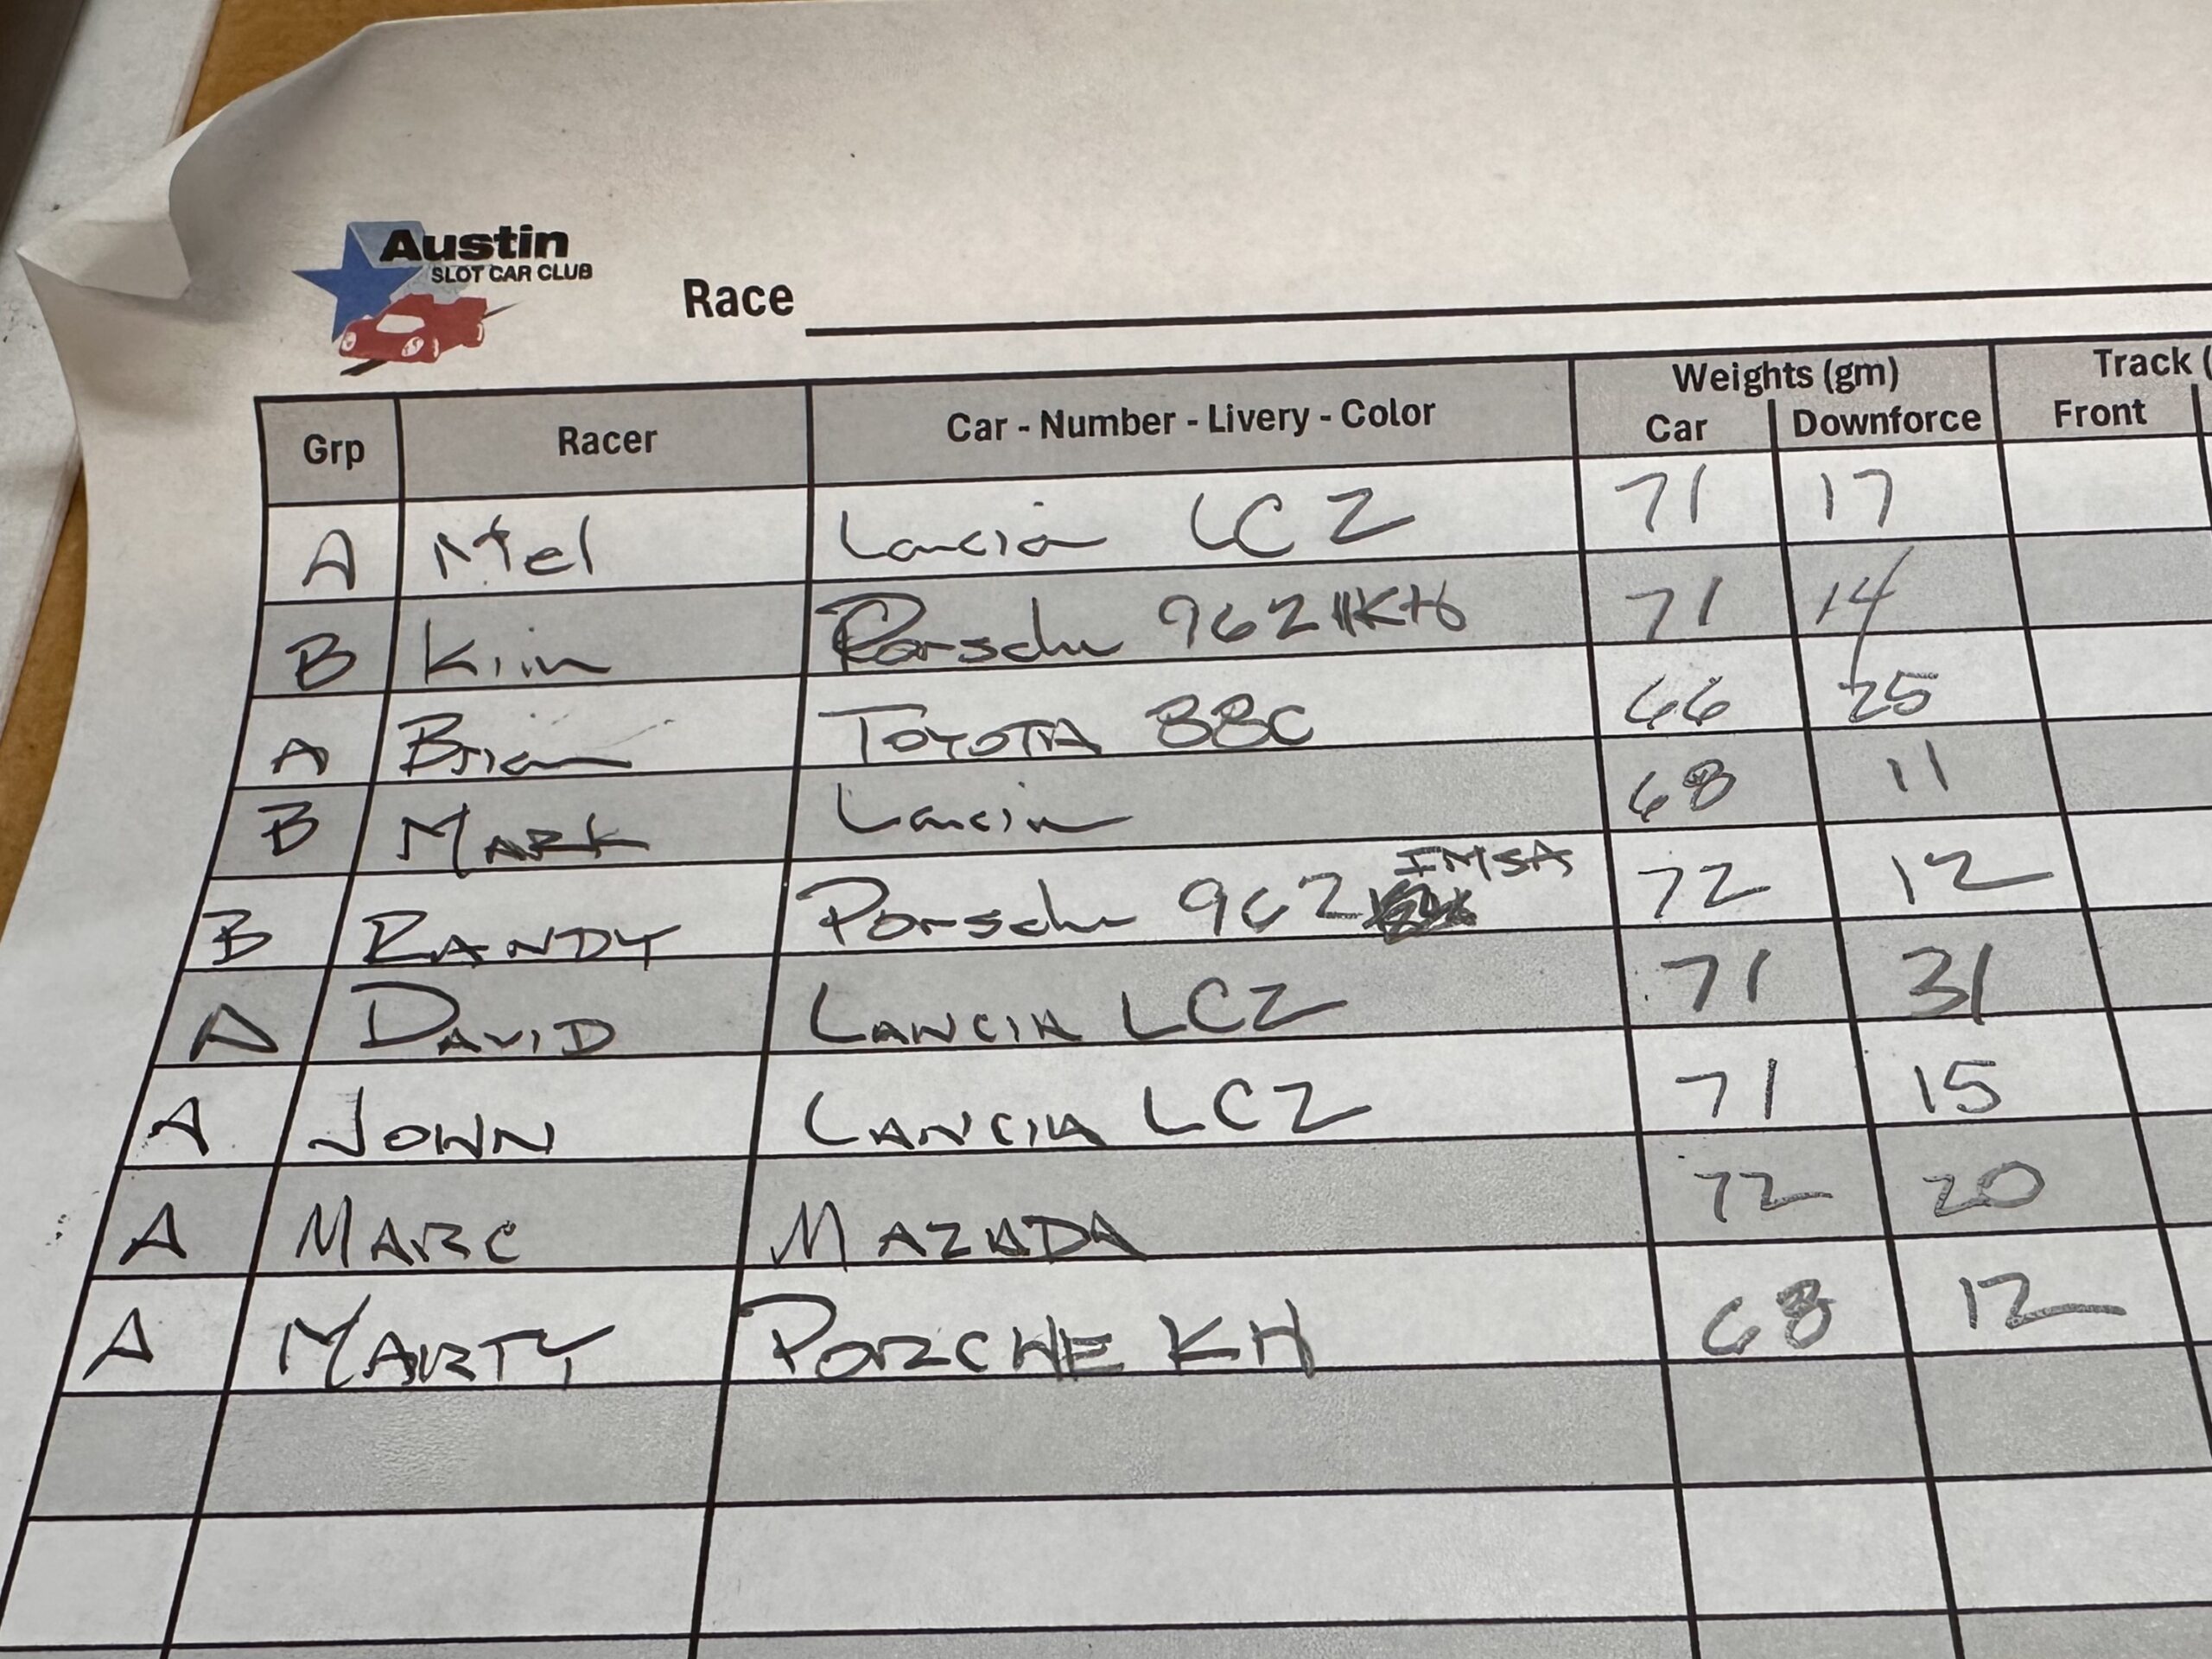 Austin
SLOT CAR CLUB
Race
Grp Racer Car - Number - Livery - Color Weights (gm) Car Downforce Track ( Front
A Mel Lancia LC2 71 17
B Kim Porsche 962 KH 71 14
A Brian TOYOTA 88C 66 25
B MARK Lancia 68 11
B RANDY Porsche 962 IMSA 72 12
A DAVID LANCIA LC2 71 31
A JOHN LANCIA LC2 71 15
A MARC MAZADA 72 20
A MARTY PORCHE KH 68 12